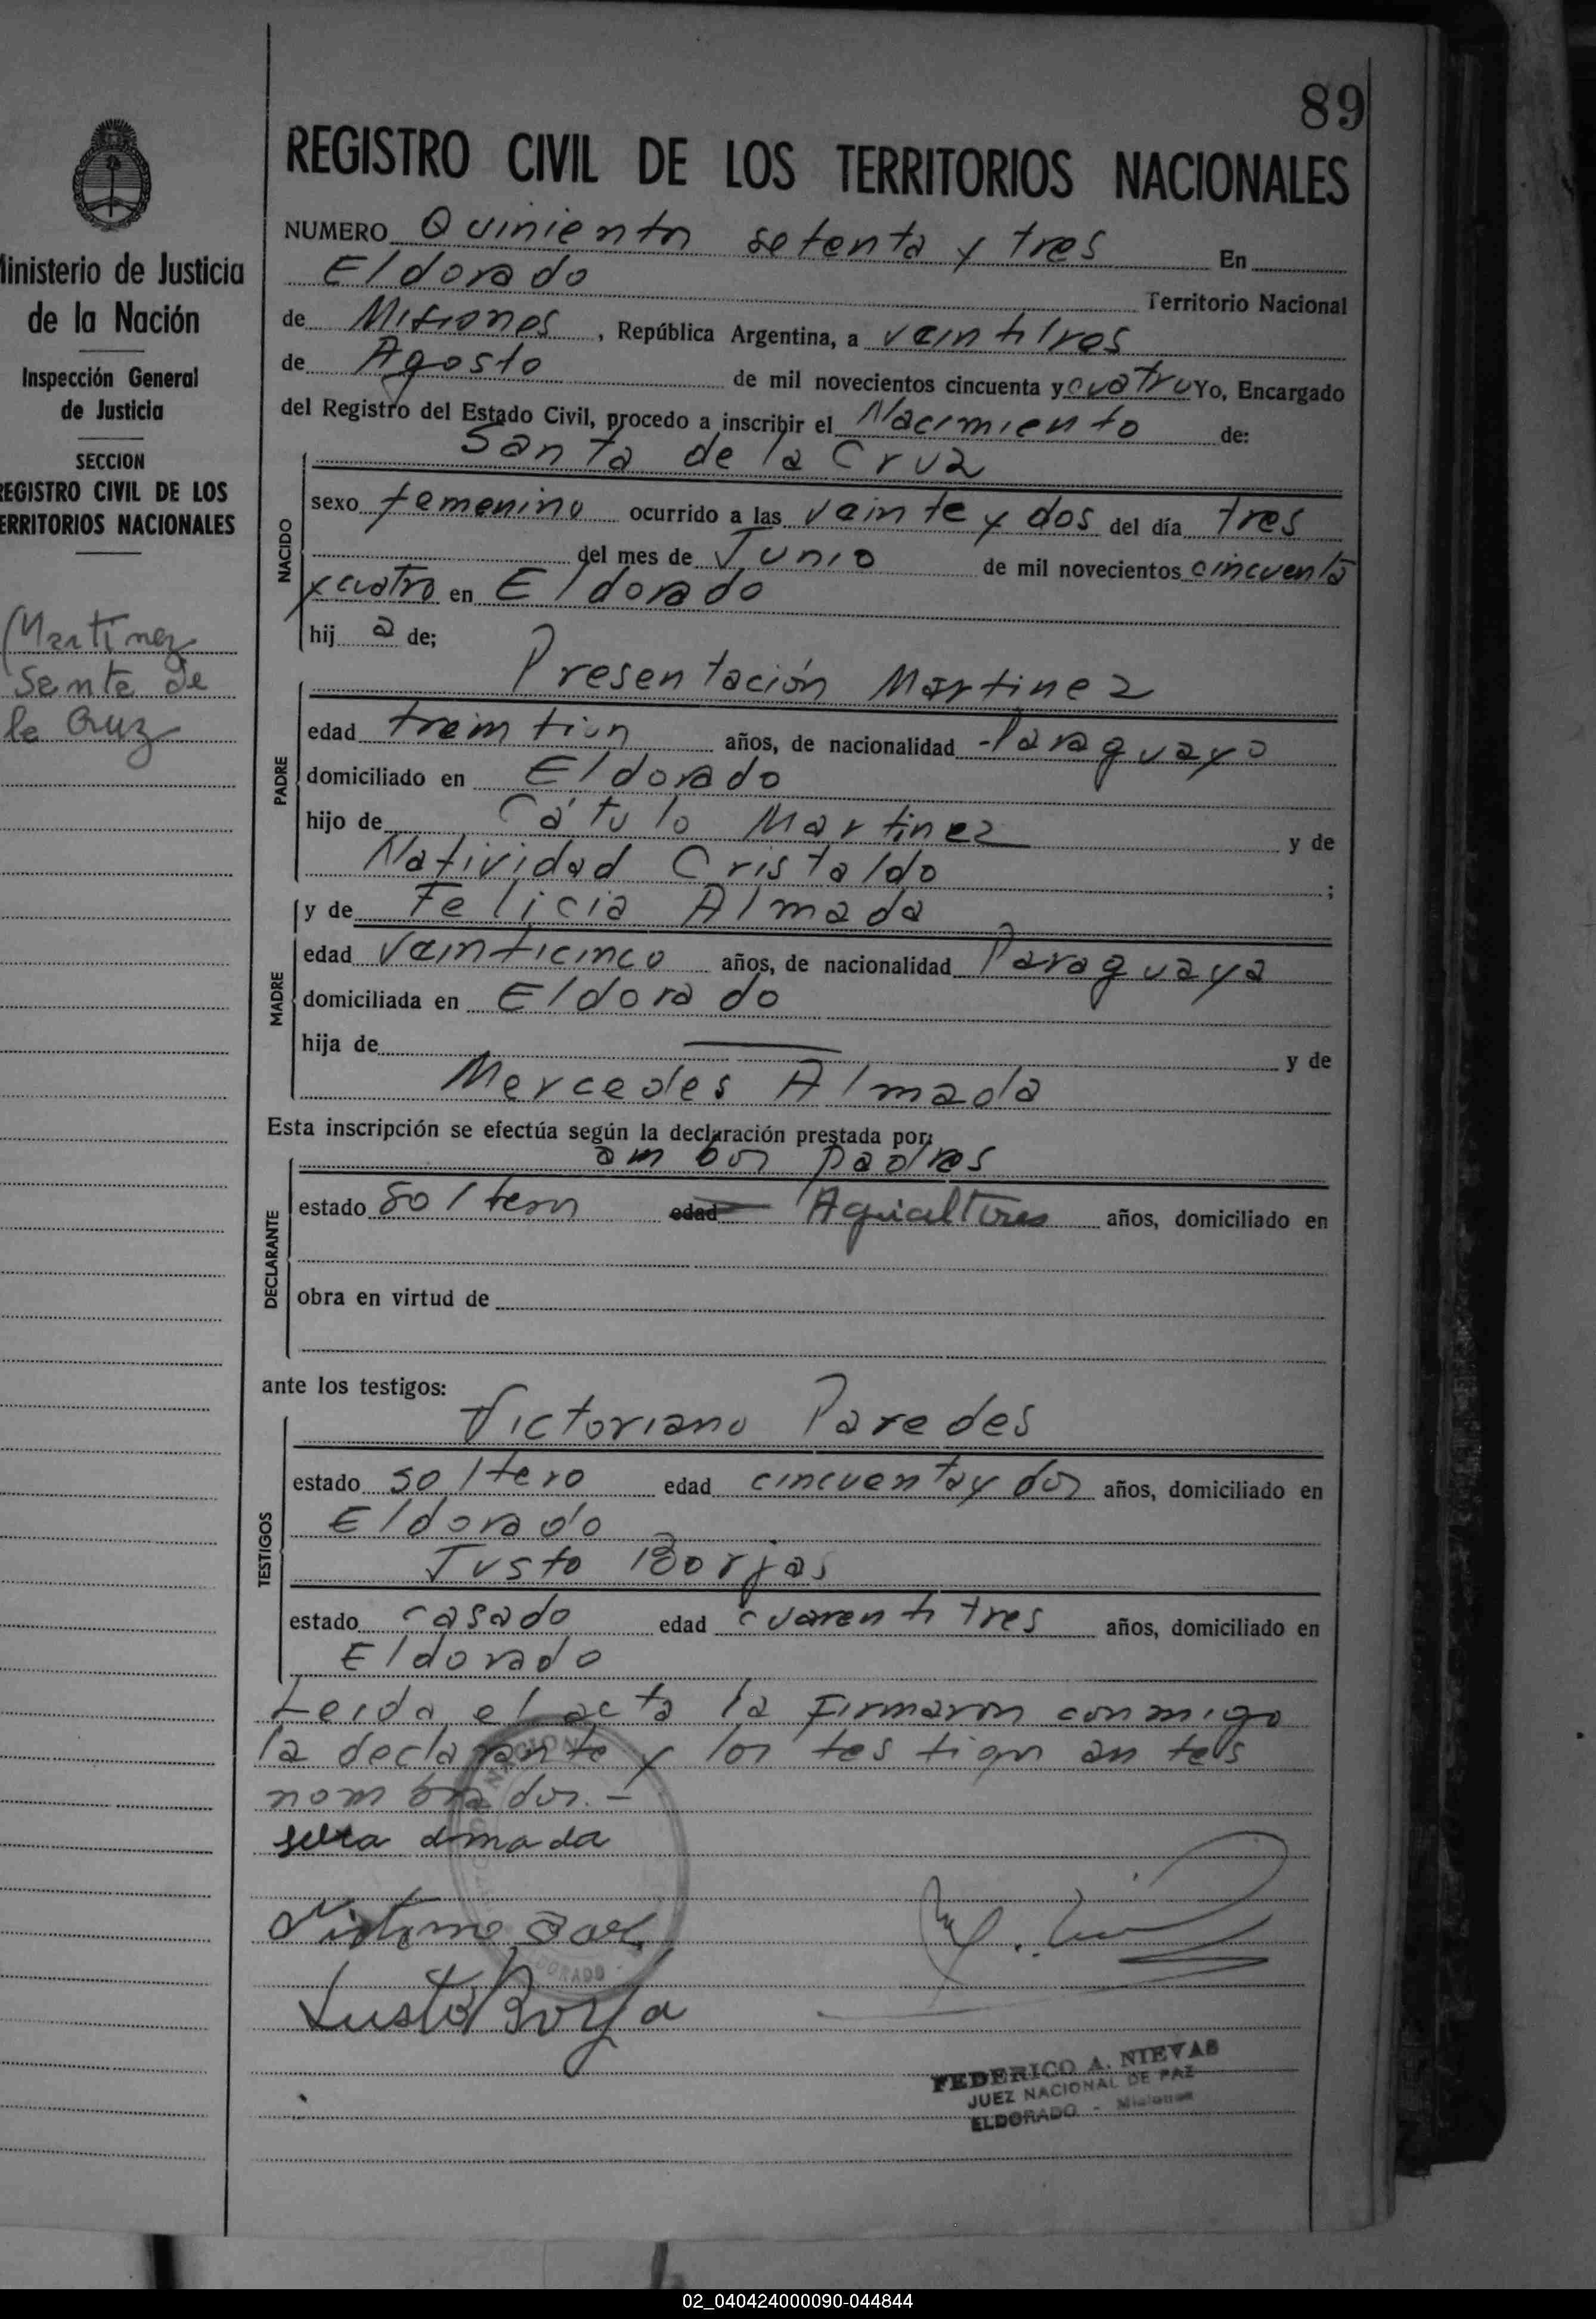 89
REGISTRO CIVIL DE LOS TERRITORIOS NACIONALES
Ministerio de Justicia
de la Nación
Inspección General
de Justicia
SECCION
REGISTRO CIVIL DE LOS
TERRITORIOS NACIONALES
Martinez
Santa de
la Cruz
NUMERO Quinientos setenta y tres En
Eldorado Territorio Nacional
de Misiones, República Argentina, a veintitres
de Agosto de mil novecientos cincuenta y cuatro Yo, Encargado
del Registro del Estado Civil, procedo a inscribir el Nacimiento de:
NACIDO
Santa de la Cruz
sexo femenino ocurrido a las veinte y dos del día tres
del mes de Junio de mil novecientos cincuenta
y cuatro en Eldorado
hij a de;
PADRE
Presentación Martinez
edad treintiun años, de nacionalidad Paraguayo
domiciliado en Eldorado
hijo de Cátulo Martinez y de
Natividad Cristaldo ;
MADRE
y de Felicia Almada
edad veinticinco años, de nacionalidad Paraguaya
domiciliada en Eldorado
hija de — y de
Mercedes Almada
Esta inscripción se efectúa según la declaración prestada por:
DECLARANTE
ambos padres
estado solteros edad Agricultores años, domiciliado en
obra en virtud de
ante los testigos:
TESTIGOS
Victoriano Paredes
estado soltero edad cincuenta y dos años, domiciliado en
Eldorado
Justo Borjas
estado casado edad cuarentitres años, domiciliado en
Eldorado
Leida el acta la firmaron conmigo
la declarante y los testigos antes
nombrados.-
almada
Justo Borja
FEDERICO A. NIEVAS
JUEZ NACIONAL DE PAZ
ELDORADO - Misiones
02_040424000090-044844